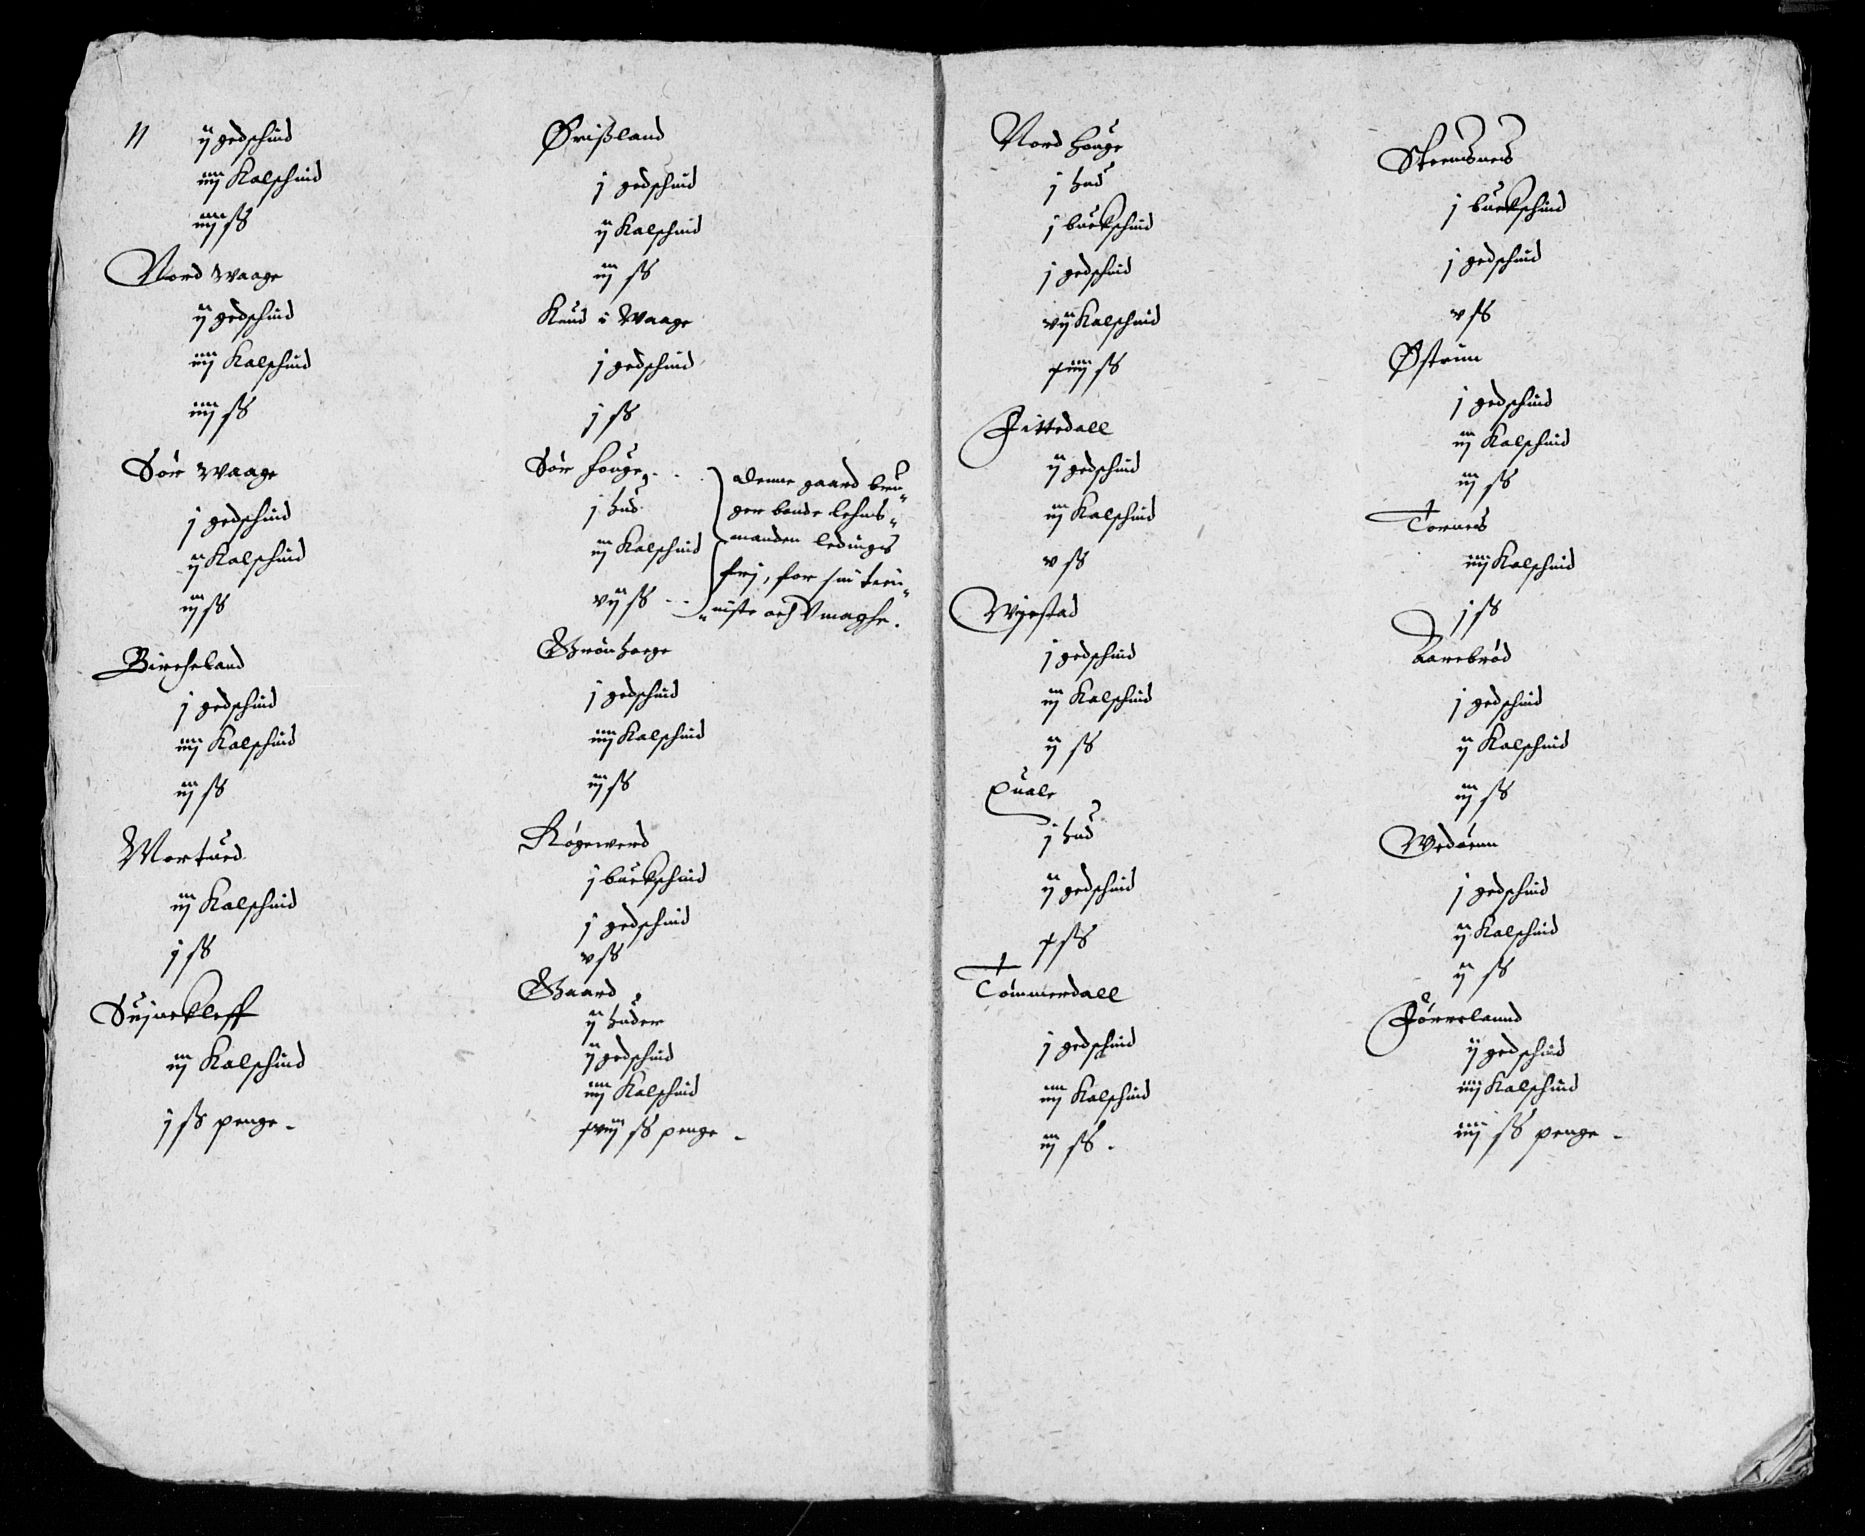 11
ij gedschind
iiij Kalschind
iiij ss
Nord Waage
ij gedschind
iiij Kalschind
iiij ss
Sör Waage
j gedschind
ij Kalschind
iij ss
Bircheland
j gedschind
iiij Kalschind
iij ss
Mortued
iij Kalschind
j ss
Sujnekleff
iij Kalschind
j ss penge.
Ørißland
j gedschind
ij Kalschind
iij ss
Knud i Waage
j gedschind
j ss
Sör houge
j hud
iij Kalschind
vij ss
denne gaard bru„
ger bonde lehns„
manden ledings
frj, for sin trei„
„niste och Vmaghe.
Grönhoege
j gedschind
iiij Kalschind
iij ss
Køgewerd
j buckschind
j gedschind
v ss
Gaard
ij huder
ij gedschind
iiij Kalschind
xviij ss penge.
Nord houge
j hud
j buckschind
j gedschind
vij Kalschind
xiiij ss
Fittedall
ij gedschind
iij Kalschind
v ss
Wijestad
j gedschind
iij Kalschind
ij ss
Quale
j hud
ij gedschind
x ss
Tömmerdall
j gedschind
iiij Kalschind
iij ss.
Steensnes
j buckschind
j gedschind
v ss
Østrim
j gedschind
iij Kalschind
iij ss
Tornes
iiij Kalschind
j ss
Barebröd
j gedschind
ij Kalschind
iij ss
Wedöenn
j gedschind
ij Kalschind
ij ss
Förrelannd
ij gedschind
iiij Kalschind
iiij ss penge.